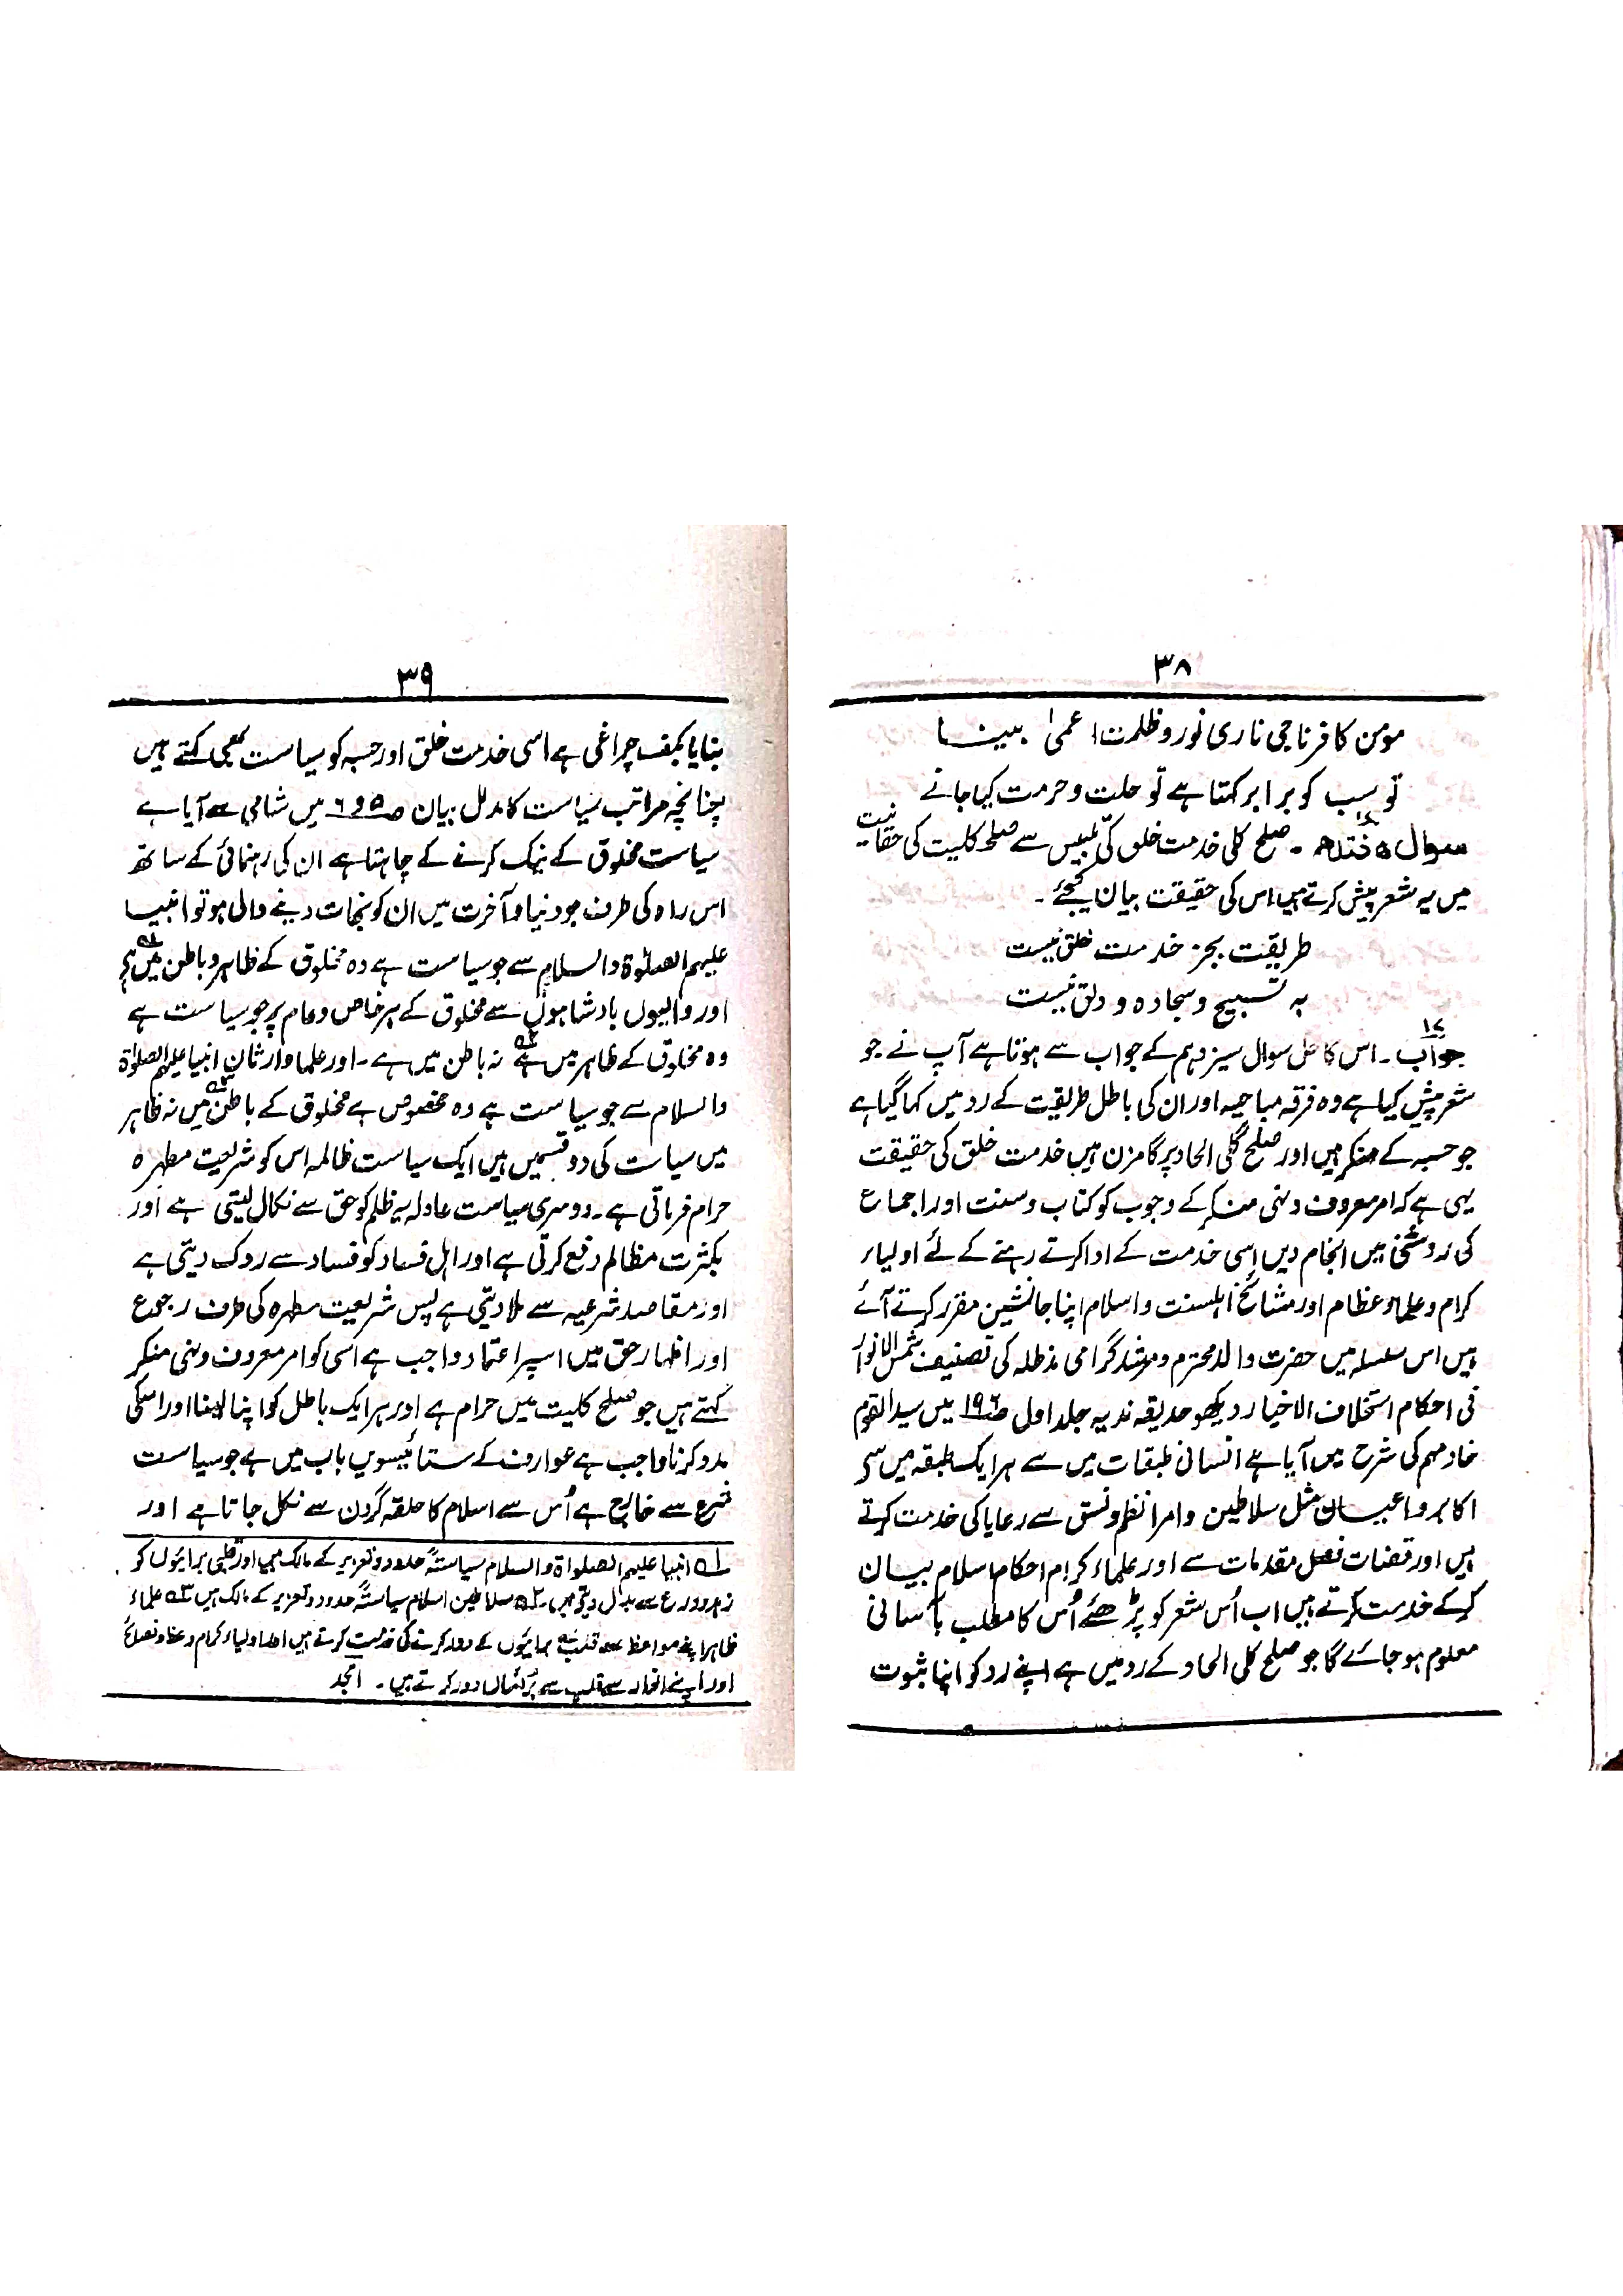 ۳۸
مومن کافر ناجی ناری نور و ظلمت اعمیٰ بینا
تو سب کو برابر کہتا ہے تو حلت و حرمت کیا جانے
سوال ہفتدہم ۱۷ ۔ صلح کلی خدمت خلق کی تلبیس سے صلح کلیت کی حقانیت
میں یہ شعر پیش کرتے ہیں اس کی حقیقت بیان کیجئے ۔
طریقت بجز خدمت خلق نیست
بہ تسبیح و سجادہ و دلق نیست
جواب ۱۷ ۔ اس کا حل سوال سیزدہم کے جواب سے ہوتا ہے آپ نے جو
شعر پیش کیا ہے وہ فرقہ مباحیہ اور ان کی باطل طریقت کے رد میں کہا گیا ہے
جو حسبہ کے منکر ہیں اور صلح کلی الحاد پر گامزن ہیں خدمت خلق کی حقیقت
یہی ہے کہ امر معروف و نہی منکر کے وجوب کو کتاب و سنت اور اجماع
کی روشنی میں انجام دیں اِسی خدمت کے ادا کرتے رہنے کے لئے اولیاء
کرام و علماء عظام اور مشائخ اہلسنت و اسلام اپنا جانشین مقرر کرتے آئے
ہیں اس سلسلہ میں حضرت والد محترم و مرشد گرامی مدظلہ کی تصنیف شمس الانوار
فی احکام استخلاف الاخیار دیکھو حدیقہ ندیہ جلد اول صـ۱۹۶ میں سید القوم
خادمہم کی شرح میں آیا ہے انسانی طبقات میں سے ہر ایک طبقہ میں سے
اکابر و اعیان مثل سلاطین و امرا نظم و نسق سے رعایا کی خدمت کرتے
ہیں اور قضات فصل مقدمات سے اور علماء کرام احکام اسلام بیان
کر کے خدمت کرتے ہیں اب اُس شعر کو پڑھئے اُس کا مطلب بآسانی
معلوم ہو جائے گا جو صلح کلی الحاد کے رد میں ہے اپنے رد کو اپنا ثبوت
۳۹
بنایا بکف چراغی ہے اسی خدمت خلق اور حسبہ کو سیاست بھی کہتے ہیں
چنانچہ مراتب سیاست کا مدلل بیان صـ۵ و ۶ میں شامی سے آیا ہے
سیاست مخلوق کے نیک کرنے کے چاہتا ہے ان کی رہنمائی کے ساتھ
اس راہ کی طرف جو دنیا و آخرت میں ان کو نجات دینے والی ہو تو انبیا
علیہم الصلوٰۃ والسلام سے جو سیاست ہے وہ مخلوق کے ظاہر و باطن میں ہے ۱؎
اور والیوں بادشاہوں سے مخلوق کے ہر خاص و عام پر جو سیاست ہے
وہ مخلوق کے ظاہر میں ہے ۲؎ نہ باطن میں ہے ۔ اور علما وارثان انبیا علیہم الصلوٰۃ
والسلام سے جو سیاست ہے وہ مخصوص ہے مخلوق کے باطن ۳؎ میں نہ ظاہر
میں سیاست کی دو قسمیں ہیں ایک سیاست ظالمہ اس کو شریعت مطہرہ
حرام فرماتی ہے ۔ دوسری سیاست عادلہ یہ ظلم کو حق سے نکال لیتی ہے اور
بکثرت مظالم دفع کرتی ہے اور اہل فساد کو فساد سے روک دیتی ہے
اور مقاصد شرعیہ سے ملا دیتی ہے پس شریعت مطہرہ کی طرف رجوع
اور اظہار حق میں اسپر اعتماد واجب ہے اسی کو امر معروف و نہی منکر
کہتے ہیں جو صلح کلیت میں حرام ہے اور ہر ایک باطل کو اپنا لینا اور اسکی
مدد کرنا واجب ہے عوارف کے ستائیسویں باب میں ہے جو سیاست
شرع سے خارج ہے اُس سے اسلام کا حلقہ گردن سے نکل جاتا ہے اور
۱؎ انبیا علیہم الصلواۃ والسلام سیاستہً حدود و تعزیر کے مالک ہیں اور قلبی برائیوں کو
زہد و ورع سے بدل دیتے ہیں ۔ ۲؎ سلاطین اسلام سیاستہً حدود و تعزیر کے مالک ہیں ۳؎ علماء
ظاہر اپنے مواعظ سے قلب برائیوں کے دور کرنے کی خدمت کرتے ہیں اولیاء کرام وعظ و نصائح
اور اپنے انوار سے قلب سے برائیاں دور کرتے ہیں ۔ امجد